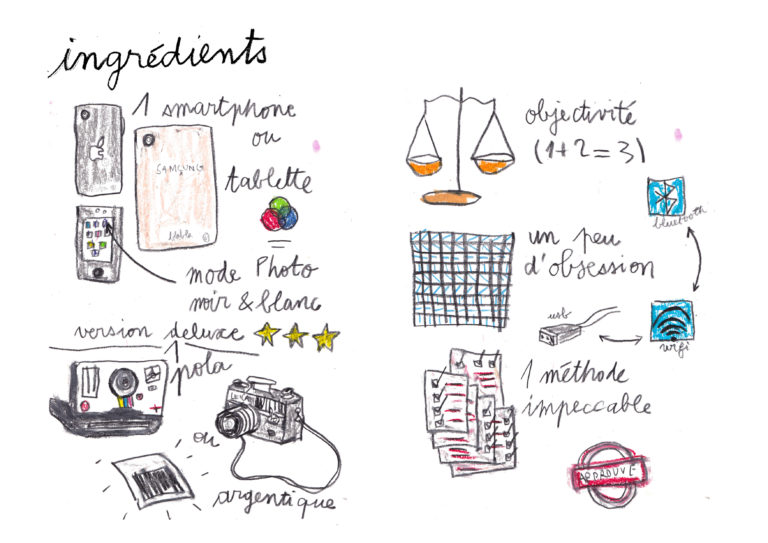 ingrédients
1 smartphone
ou
tablette
SAMSUNG
mode Photo
noir & blanc
version deluxe
1
pola
ou
argentique
objectivité
(1+2=3)
bluetooth
un peu
d'obsession
usb
wifi
1 méthode
impeccable
APPROUVÉ